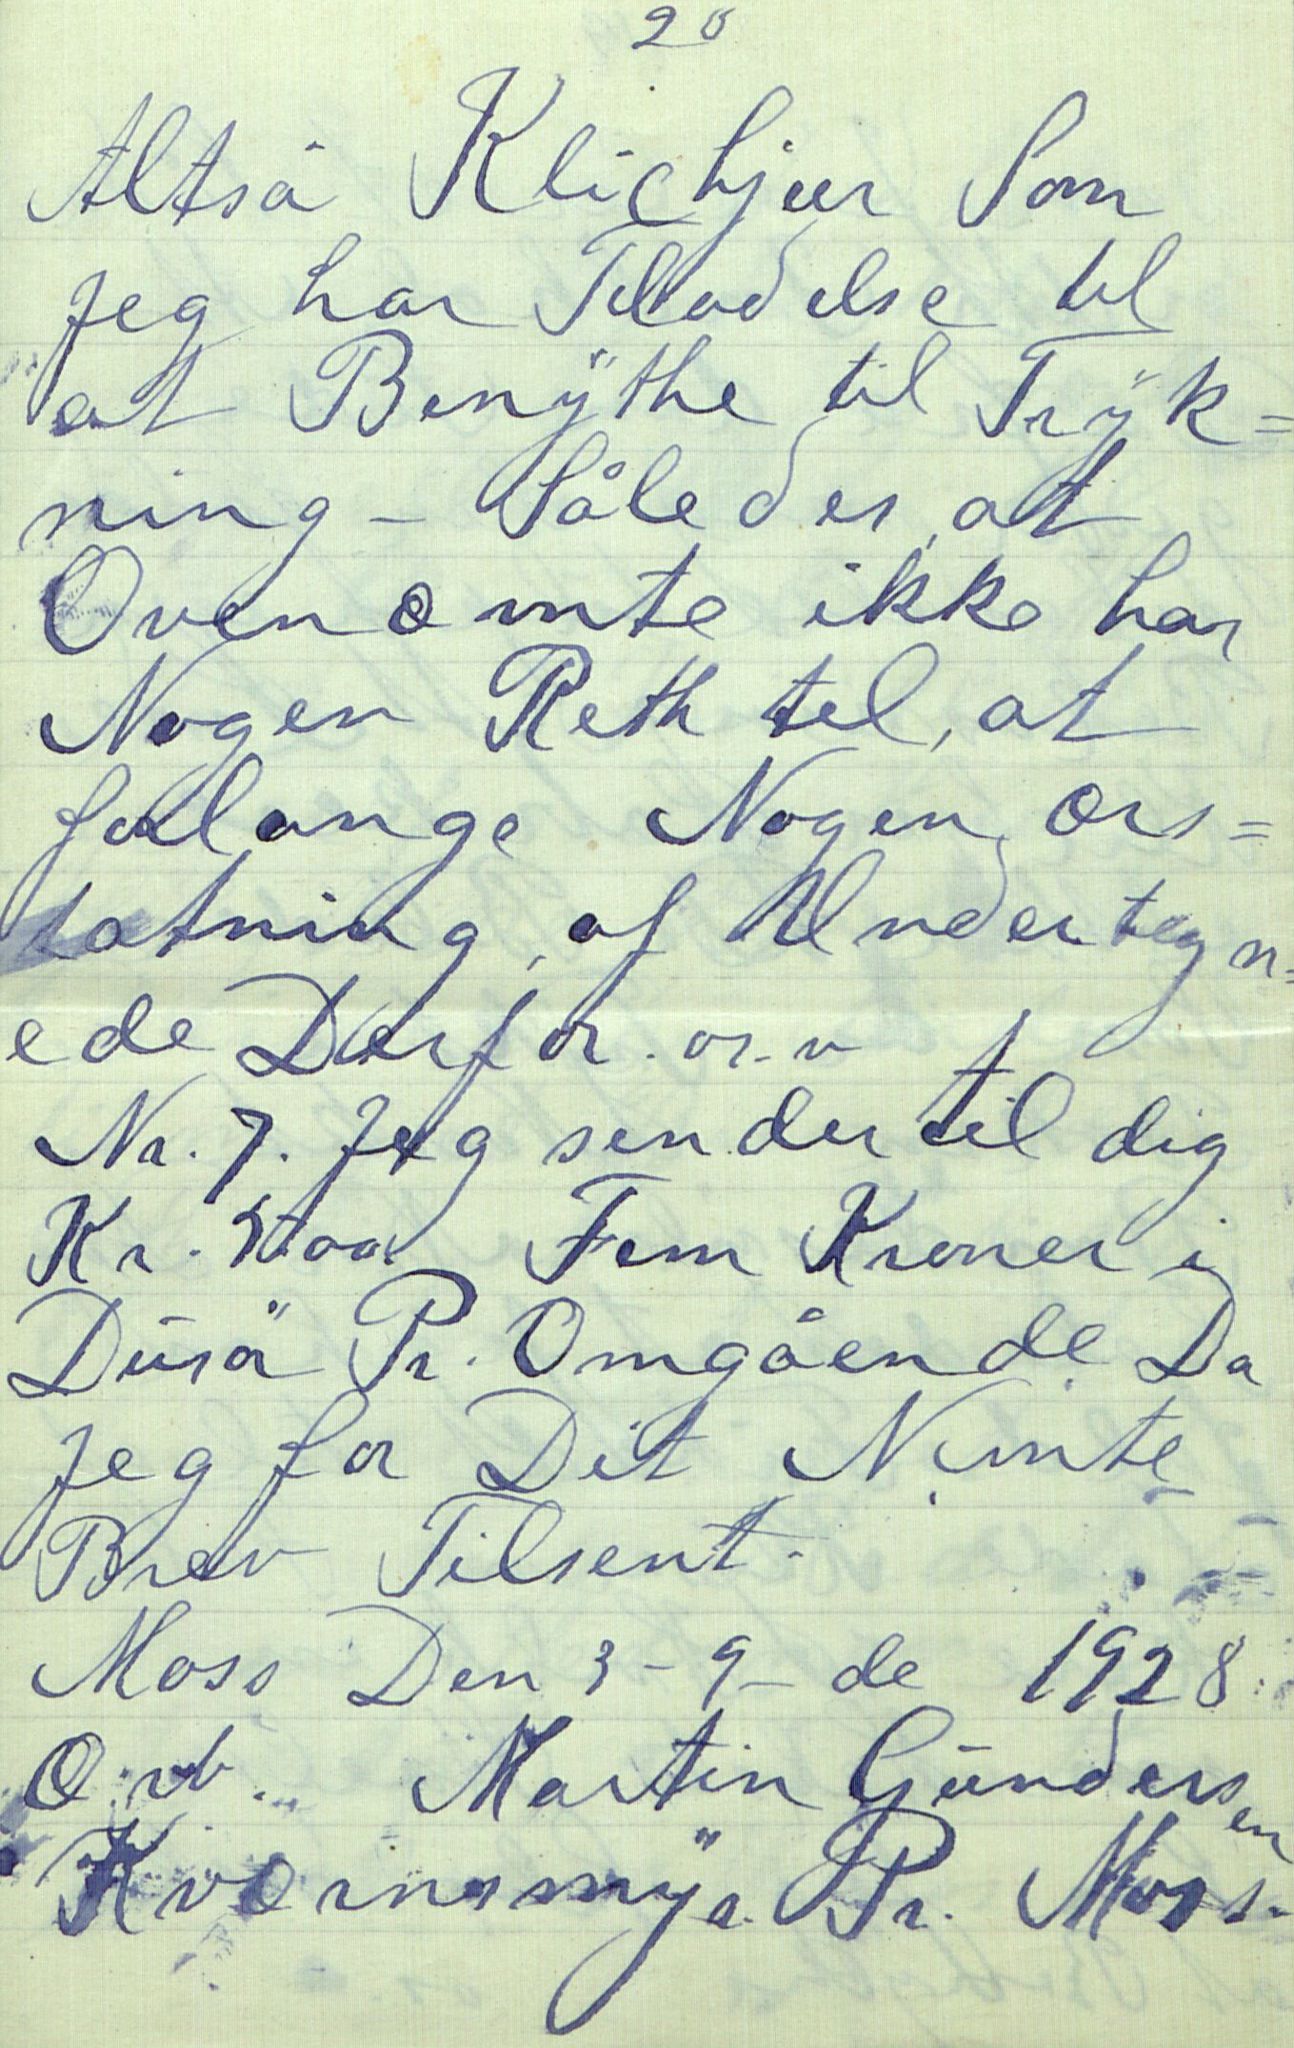 20
Altså Klichjeer Som
Jeg har Tiladelse til
at Benÿthe til Trÿk=
ning - Således, at
Ovenomte ikke har
Nogen Reth tel, at
forlange Nogen, Ers=
tatning, af Undertegn=
ede Derfor. or. v
Nr. 7. Jeg sender til dig
Kr. Fem Kroner i
Pr. Omgående. Da
Jeg for Dit Nvnte
Brev Tilsent.
Moss Den 3 - 9 - de 1928.
Martin Gündersen
Kvernsmÿr. Pr. Moss.